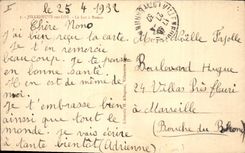 le 25-4-1932
Chère Nono
j'ai bien reçu ta carte.
Je t'en remercie
beaucoup. je te pense
en bonne santé.
Il en est de même de
moi.
Je t'embrasse bien
ainsi que tout le
monde. je vais écrire
à tante bientôt (Adrienne)
Mademoiselle
Boulevard Hugue
24 Villas Prés fleuri
à Marseille
(Bouche du Rhône)